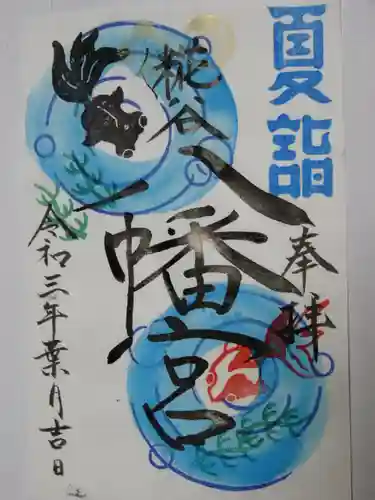 夏詣
奉拝
糀谷
八幡宮
令和三年葉月吉日